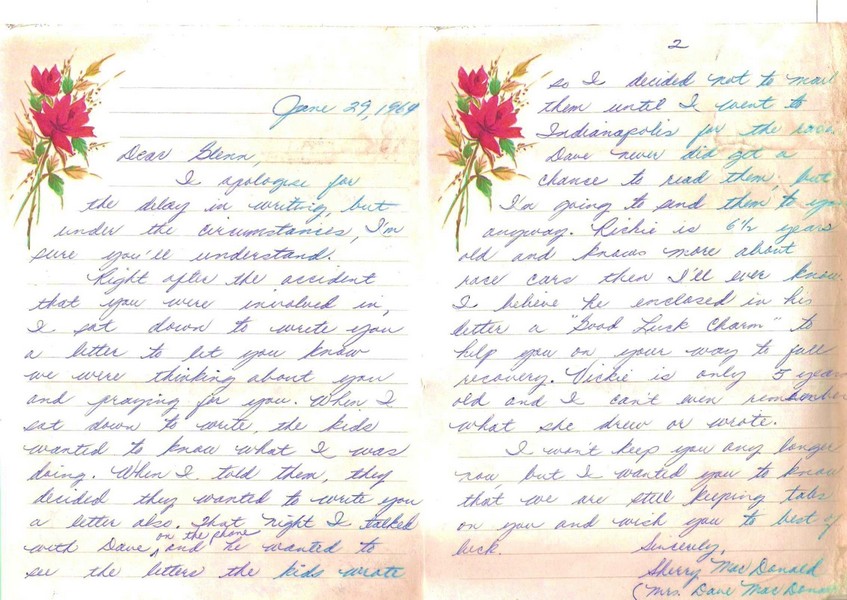 June 29, 1964
Dear Glenn,
I apologise for
the delay in writing, but
under the circumstances, I'm
sure you'll understand.
Right after the accident
that you were involved in,
I sat down to write you
a letter to let you know
we were thinking about you
and praying for you. When I
sat down to write, the kids
wanted to know what I was
doing. When I told them, they
decided they wanted to write you
a letter also. That night I talked
with Dave on the phone, and he wanted to
see the letters the kids wrote
2
so I decided not to mail
them until I went to
Indianapolis for the race.
Dave never did get a
chance to read them, but
I'm going to send them to you
anyway. Richie is 6½ years
old and knows more about
race cars then I'll ever know.
I believe he enclosed in his
letter a "Good Luck Charm" to
help you on your way to full
recovery. Vickie is only 5 years
old and I can't even remember
what she drew or wrote.
I won't keep you any longer
now, but I wanted you to know
that we are still keeping tabs
on you and wish you to best of
luck.
Sincerely,
Sherry MacDonald
(Mrs. Dave MacDonald